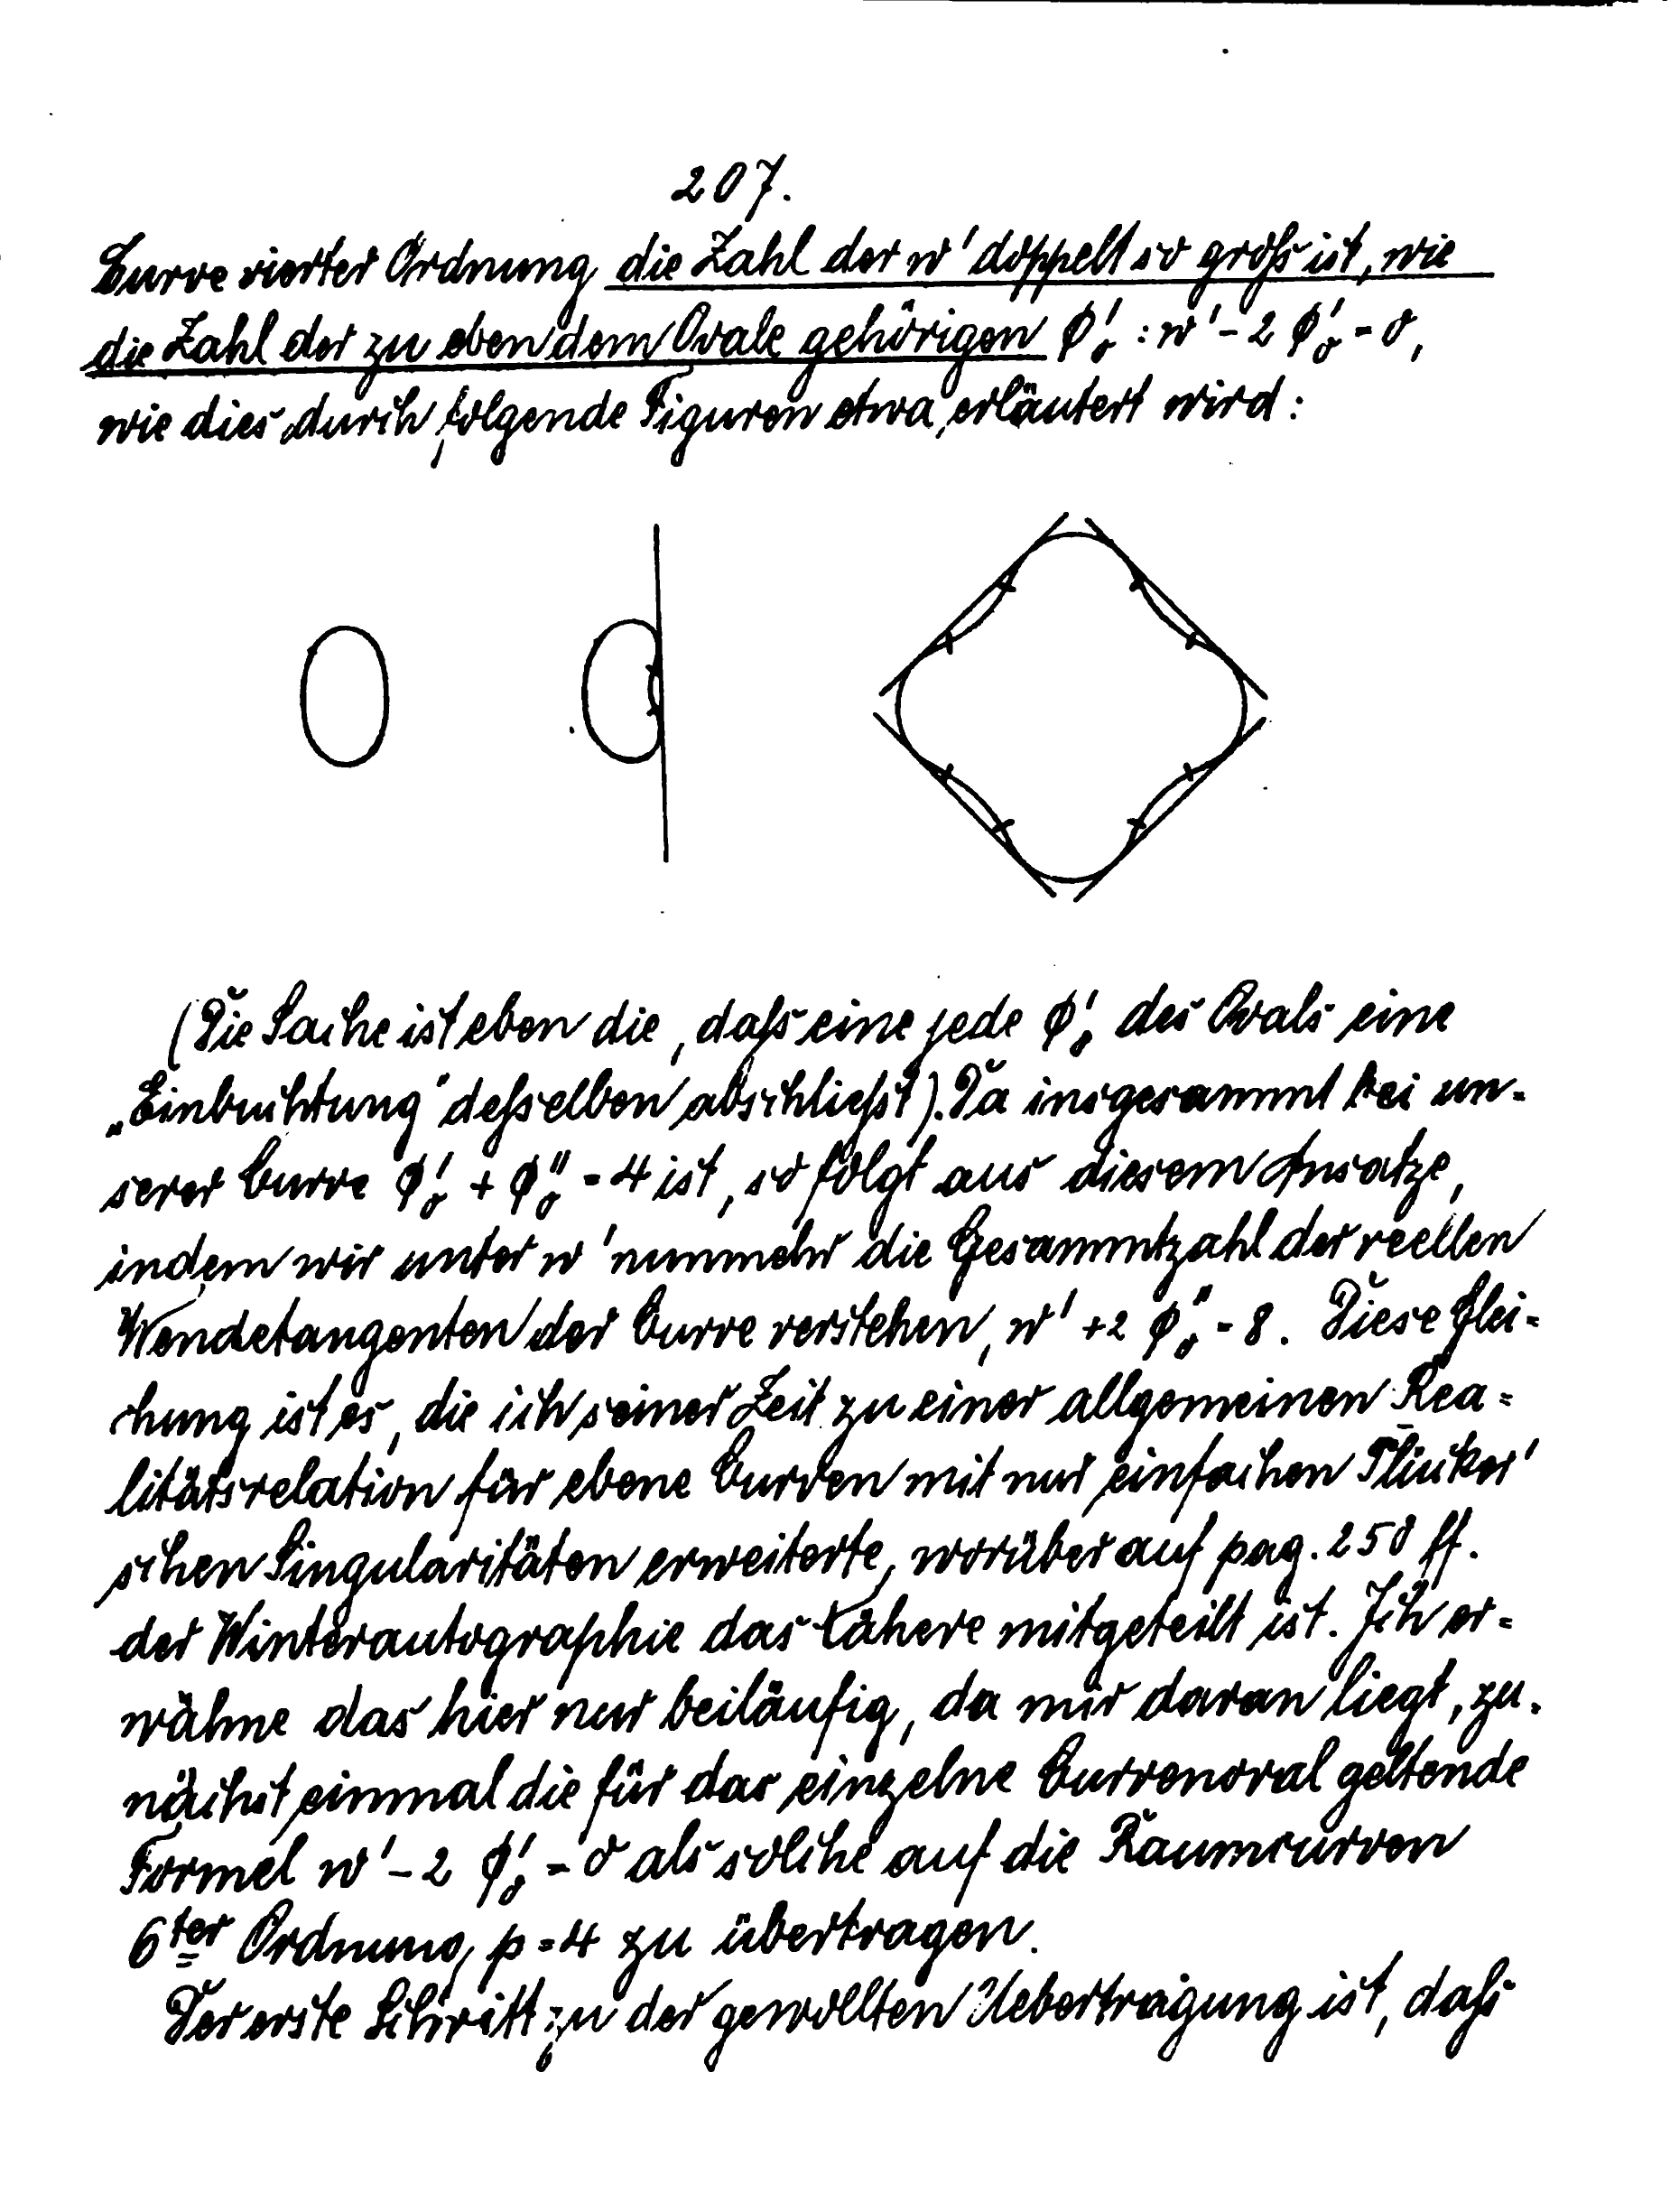 207.
Curve vierter Ordnung die Zahl der w' doppelt so groß ist, wie
die Zahl der zu eben dem Ovale gehörigen ϕ'₀ : w' - 2 ϕ'₀ = 0,
wie dies durch folgende Figuren etwa erläutert wird:
(Die Sache ist eben die, daß eine jede ϕ'₀ des Ovals eine
„Einbuchtung" deßselben abschließt). Da insgesammt bei un-
serer Curve ϕ'₀ + ϕ''₀ = 4 ist, so folgt aus diesem Ansatze,
indem wir unter w' nunmehr die Gesammtzahl der reellen
Wendetangenten der Curve verstehen, w' + 2 ϕ''₀ = 8. Diese Glei-
chung ist es, die ich seiner Zeit zu einer allgemeinen Rea-
litätsrelation für ebene Curven mit nur einfachen Plücker'
schen Singularitäten erweiterte, worüber auf pag. 250 ff.
der Winterautographie das Nähere mitgeteilt ist. Ich er-
wähne das hier nur beiläufig, da mir daran liegt, zu-
nächst einmal die für das einzelne Curvenoval geltende
Formel w' - 2 ϕ'₀ = 0 als solche auf die Raumcurven
6ter Ordnung, p = 4 zu übertragen.
Der erste Schritt zu der gewollten Uebertragung ist, daß